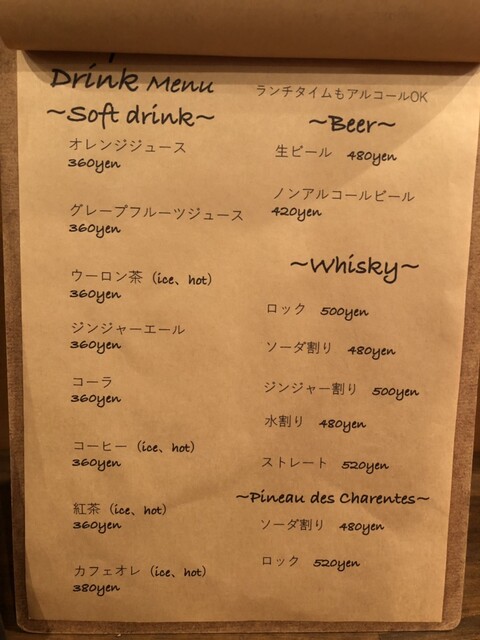 Drink Menu
~Soft drink~
オレンジジュース
360yen
グレープフルーツジュース
360yen
ウーロン茶（ice、hot）
360yen
ジンジャーエール
360yen
コーラ
360yen
コーヒー（ice、hot）
360yen
紅茶（ice、hot）
360yen
カフェオレ（ice、hot）
380yen
ランチタイムもアルコールOK
~Beer~
生ビール 480yen
ノンアルコールビール
420yen
~Whisky~
ロック 500yen
ソーダ割り 480yen
ジンジャー割り 500yen
水割り 480yen
ストレート 520yen
~Pineau des Charentes~
ソーダ割り 480yen
ロック 520yen